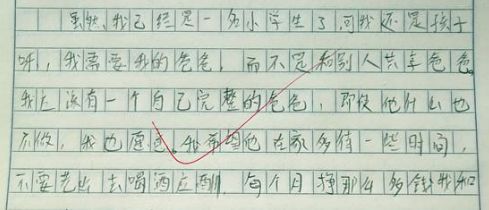 虽然,我已经是一名小学生了,可我还是孩子
呀,我需要我的爸爸,而不是和别人共享爸爸。
我应该有一个自己完整的爸爸,即使他什么也
不做,我也愿意。我希望他在家多待一些时间,
不要老出去喝酒应酬,每个月挣那么多钱我和